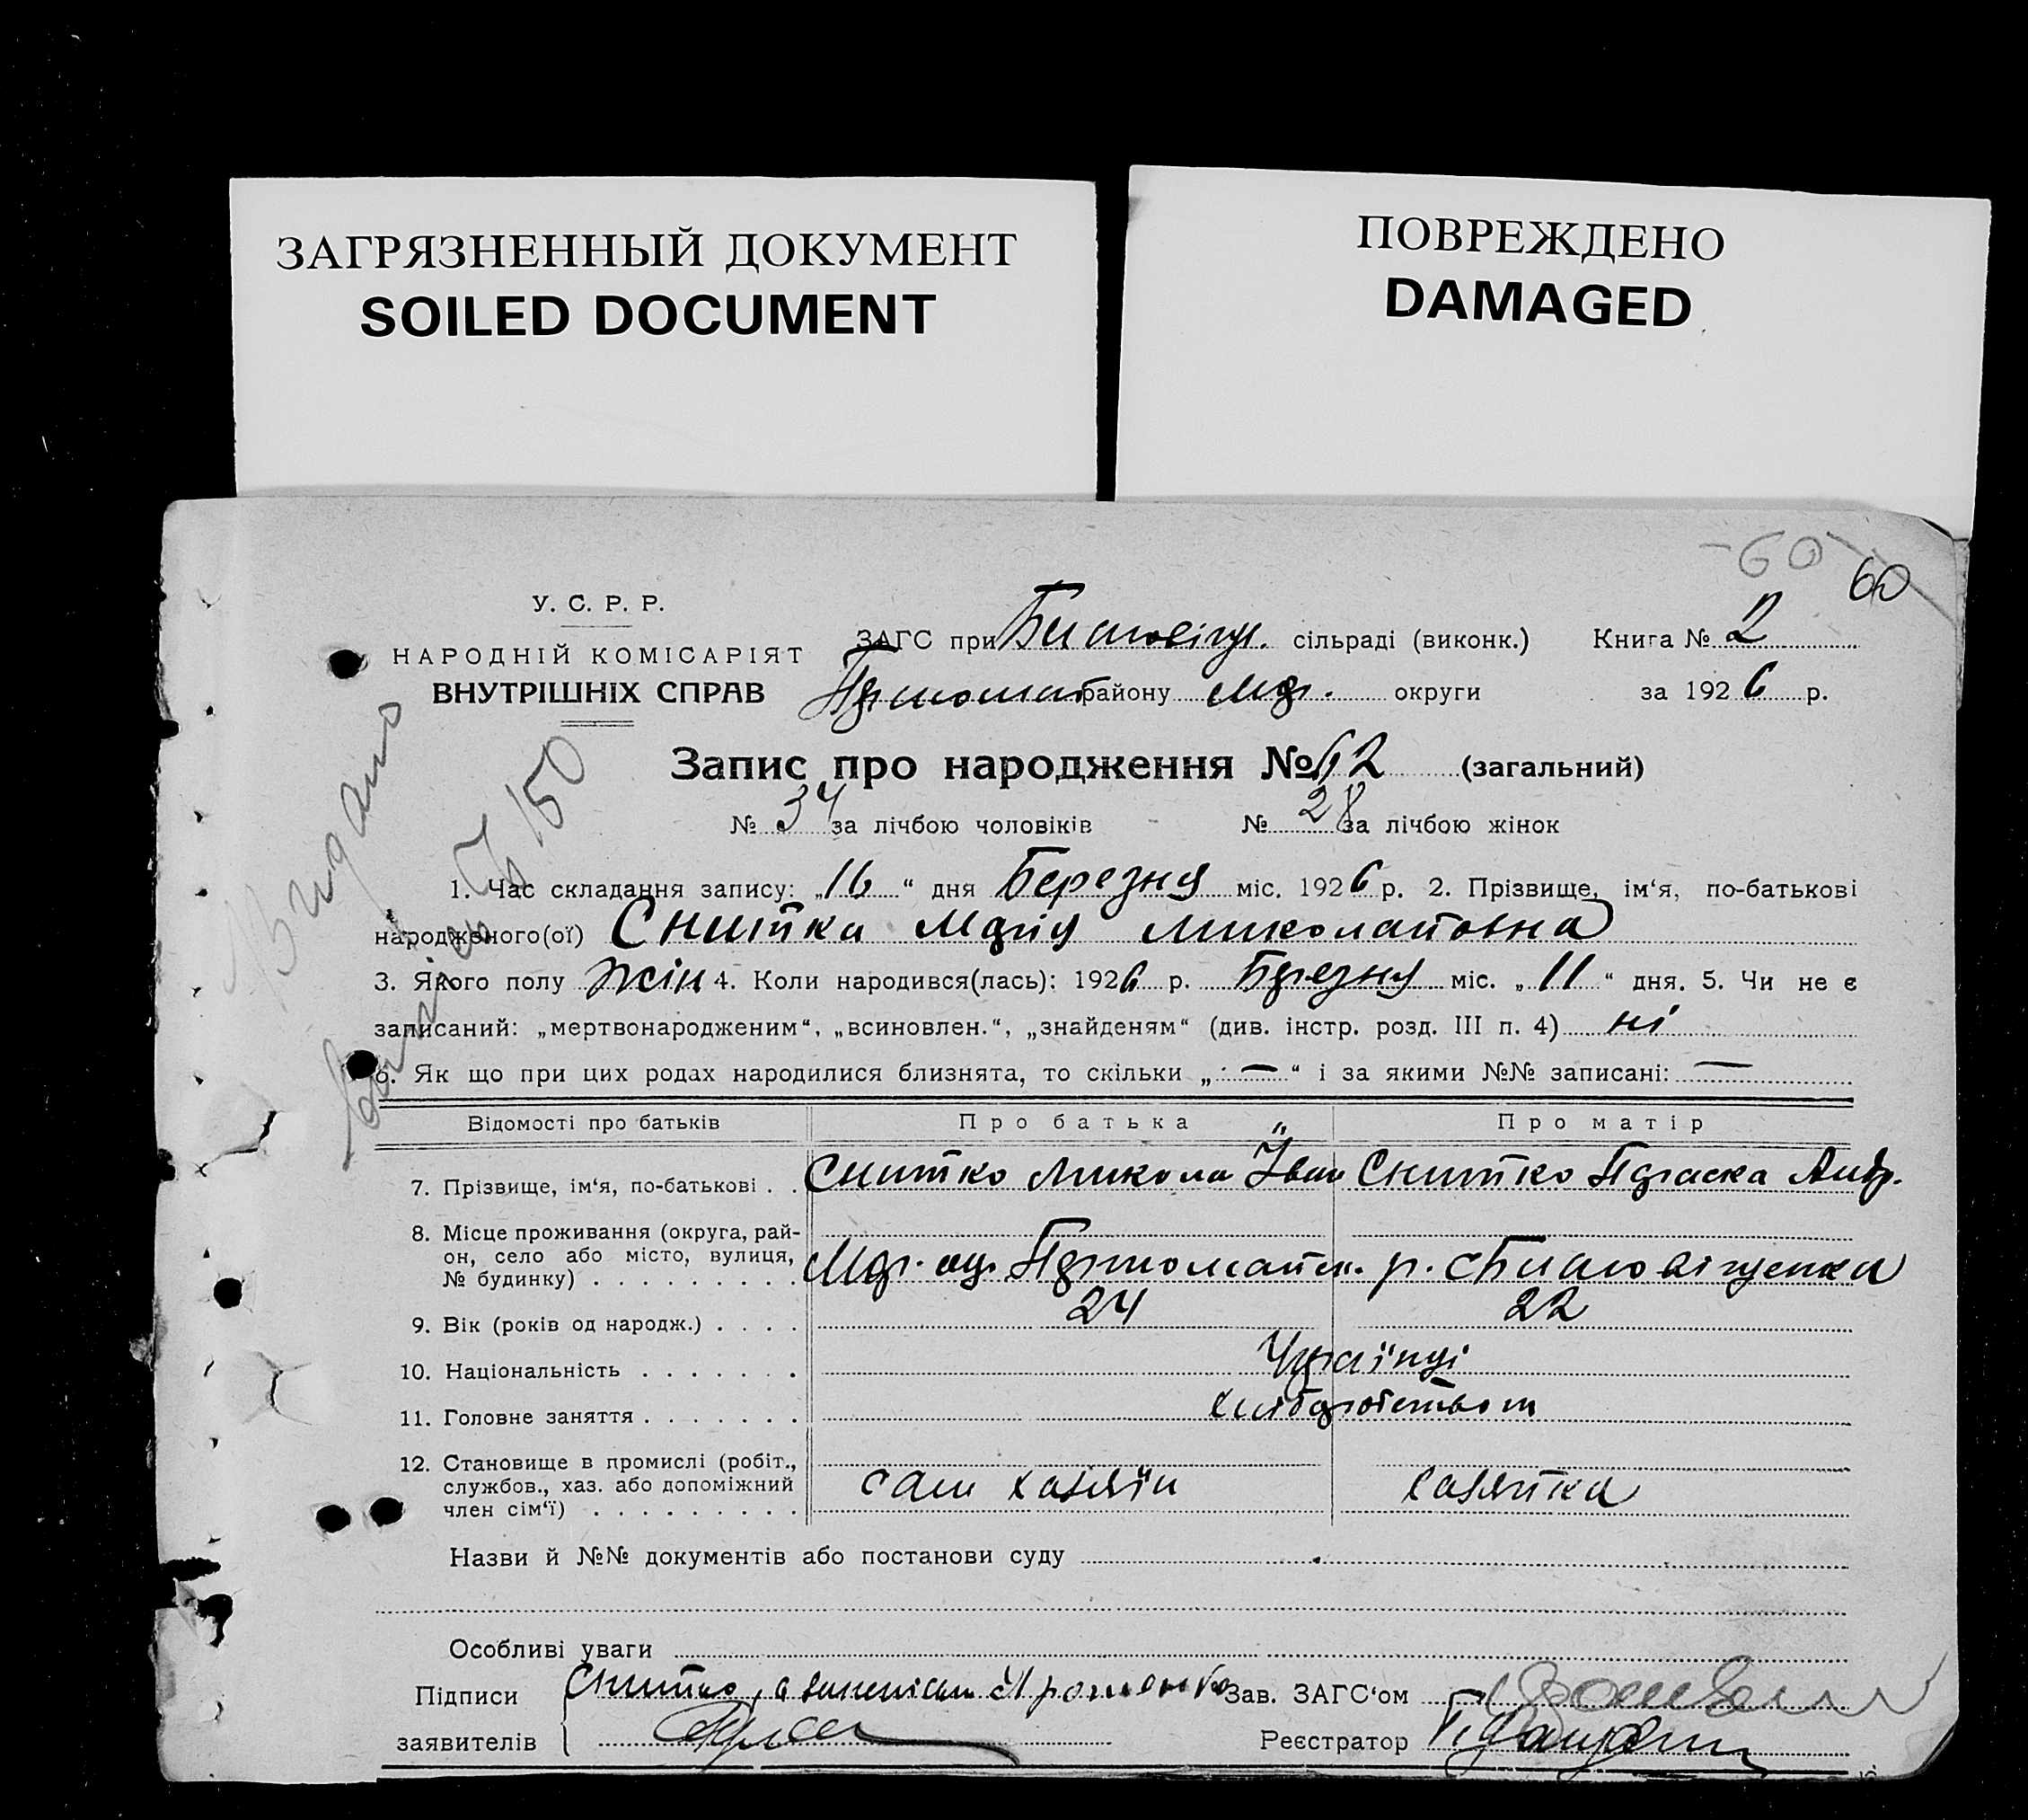 ЗАГРЯЗНЕННЫЙ ДОКУМЕНТ
SOILED DOCUMENT
ПОВРЕЖДЕНО
DAMAGED
-60-
60
У. С. Р. Р.
НАРОДНІЙ КОМІСАРІЯТ
ВНУТРІШНІХ СПРАВ
ЗАГС при сільраді (виконк.) Книга № 2
району округи за 1926 р.
Запис про народження № 62 (загальний)
№ 34 за лічбою чоловіків № 28 за лічбою жінок
1. Час складання запису: „16“ дня Березня міс. 1926 р. 2. Прізвище, ім‘я, по-батькові
народженого(ої) Снитка Марія Миколаївна
3. Якого полу жін 4. Коли народився(лась): 1926 р. Березня міс. „11“ дня. 5. Чи не є
записаний: „мертвонародженим“, „всиновлен.“, „знайденям“ (див. інстр. розд. III п. 4) ні
6. Як що при цих родах народилися близнята, то скільки „—“ і за якими №№ записані: —
Відомості про батьків Про батька Про матір
7. Прізвище, ім‘я, по-батькові . . Снитко Микола Іван Снитко Параска
8. Місце проживання (округа, рай-
он, село або місто, вулиця,
№ будинку) . . . . . . . . .
9. Вік (років од народж.) . . . . 24 22
10. Національність . . . . . . . Українці
11. Головне заняття . . . . . . .
12. Становище в промислі (робіт.,
службов., хаз. або допоміжний
член сім‘ї) . . . . . . . . . сам хазяїн хазяйка
Назви й №№ документів або постанови суду
Особливі уваги
Підписи Снитко, а Зав. ЗАГС‘ом
заявителів Реєстратор
Видано
150